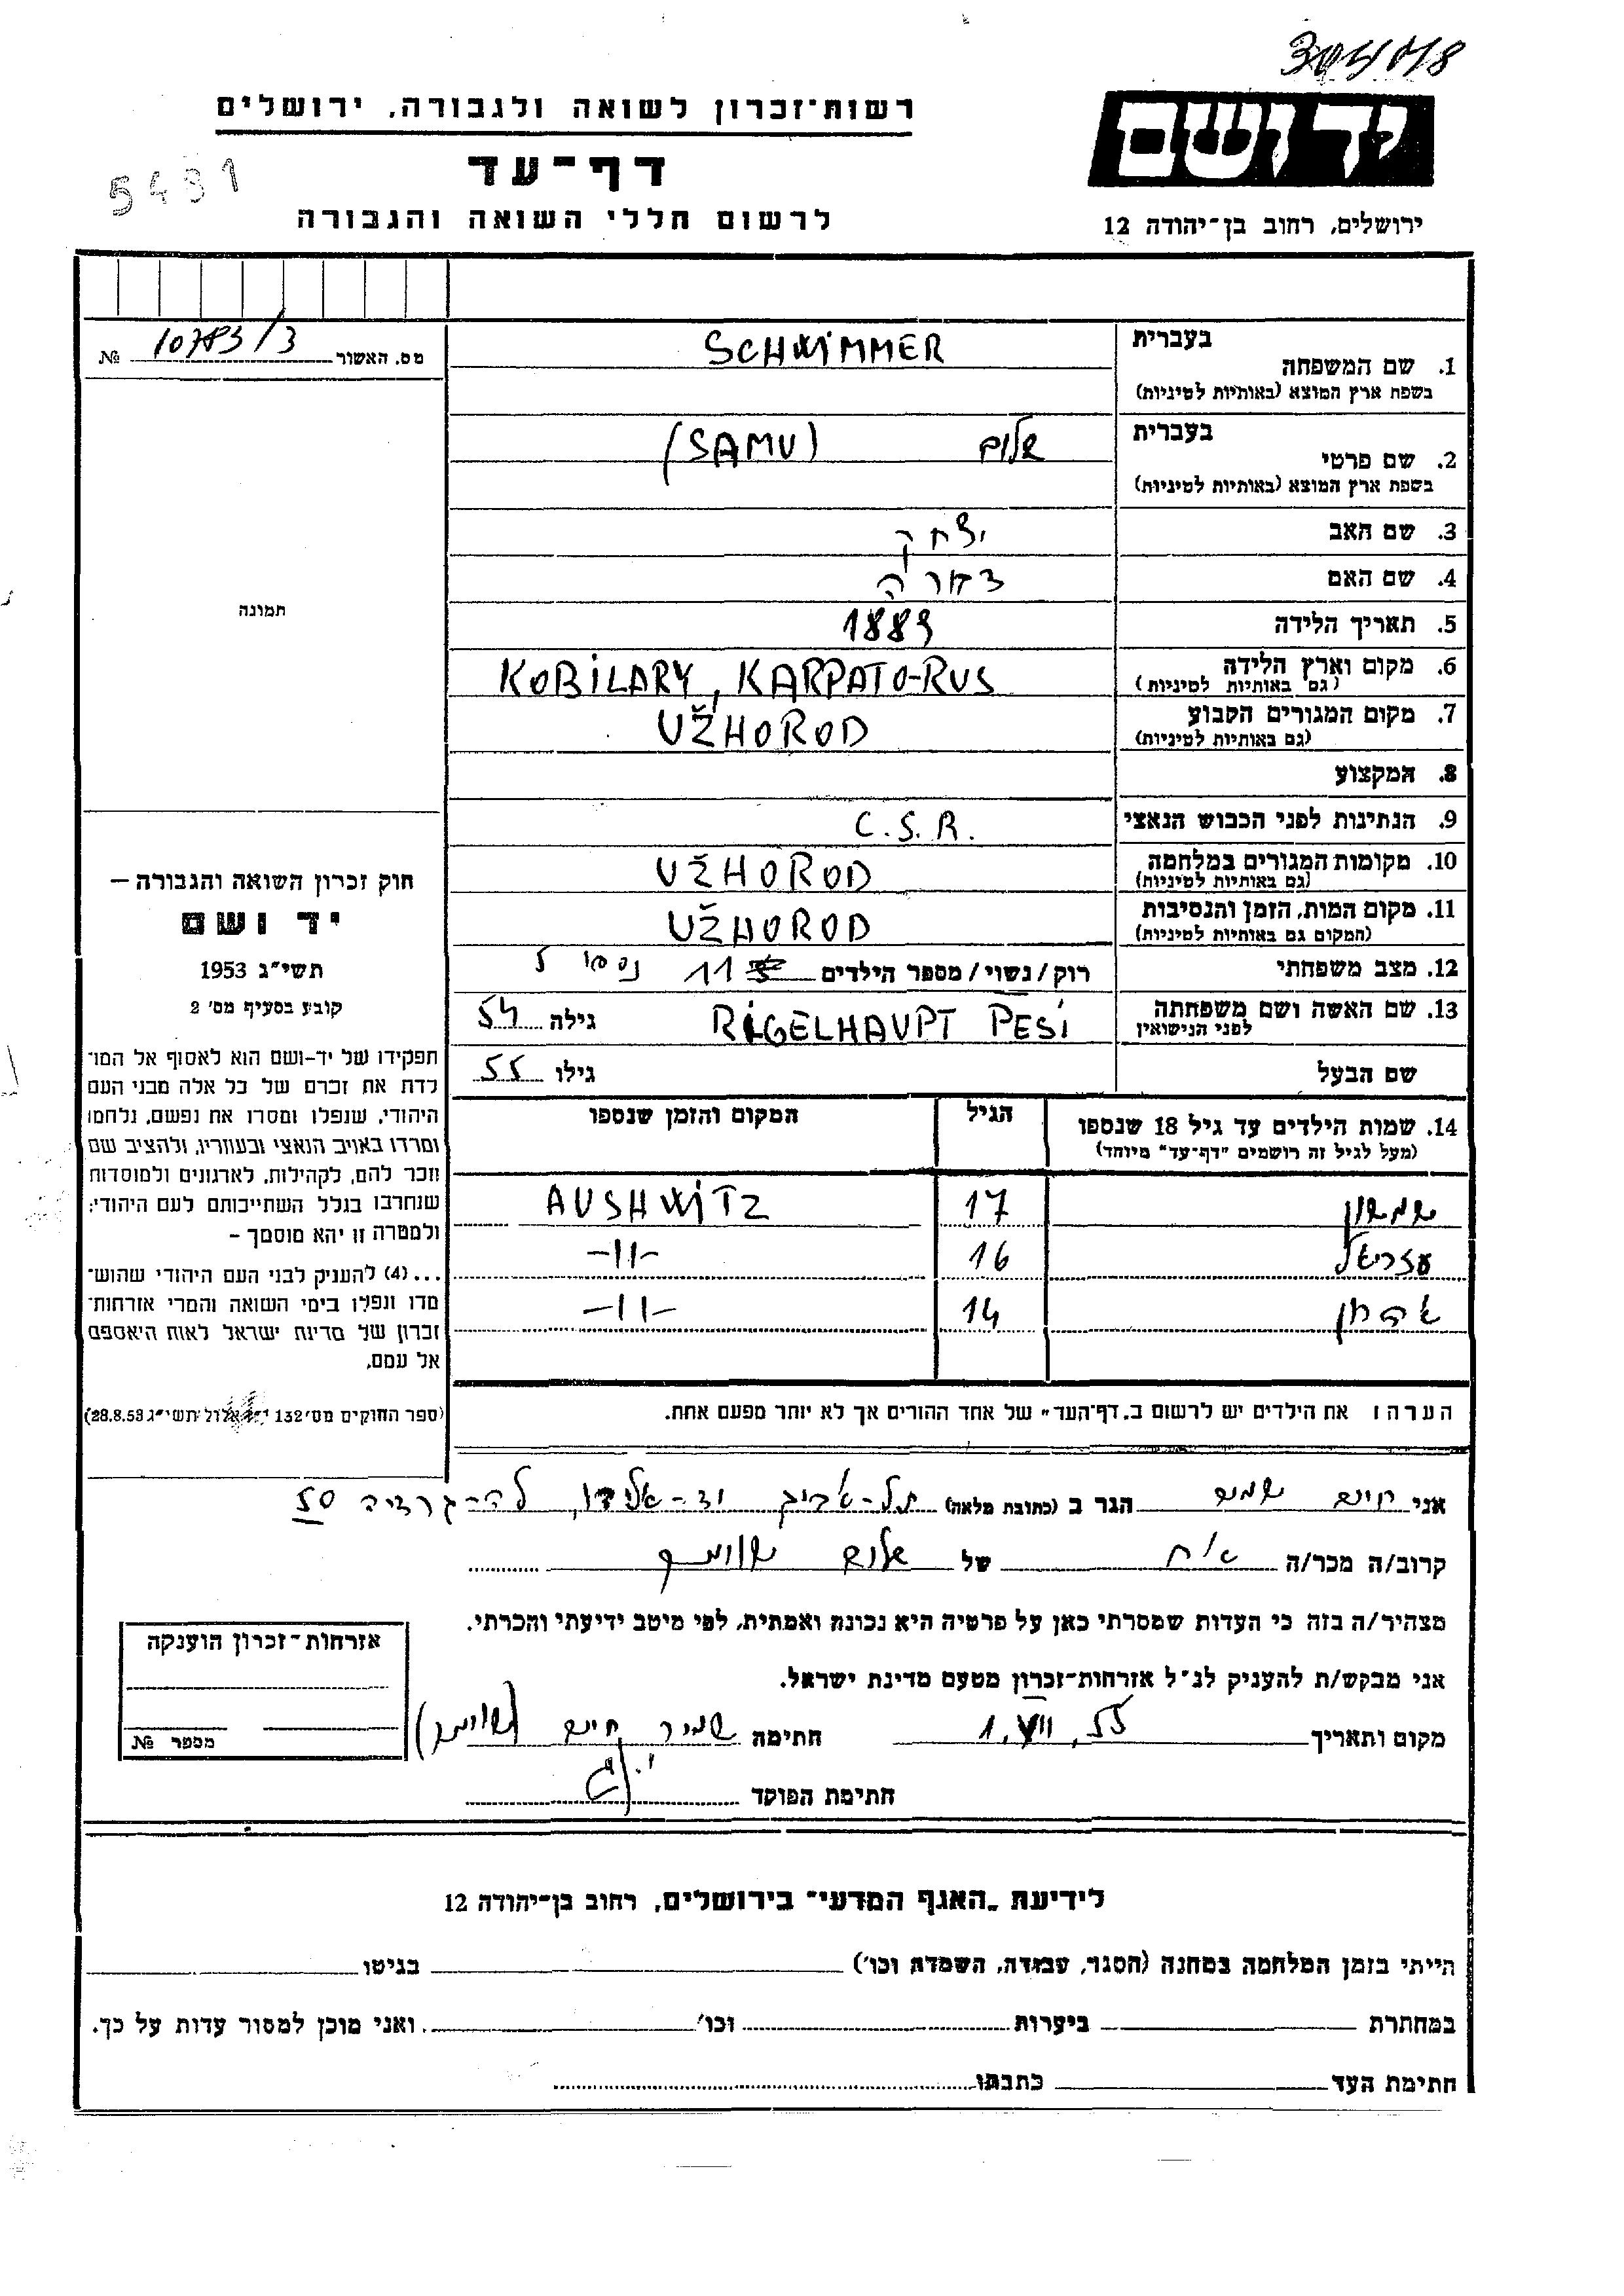 יד ושם
ירושלים, רחוב בן־יהודה 12
רשות־זכרון לשואה ולגבורה, ירושלים
דף־עד
לרשום חללי השואה והגבורה
5431
מס. האשור 10783/3 №
תמונה
חוק זכרון השואה והגבורה —
יד ושם
תשי"ג 1953
קובע בסעיף מס' 2
תפקידו של יד-ושם הוא לאסוף אל המו־
לדת את זכרם של כל אלה מבני העם
היהודי, שנפלו ומסרו את נפשם, נלחמו
ומרדו באויב הנאצי ובעוזריו, ולהציב שם
וזכר להם, לקהילות, לארגונים ולמוסדות
שנחרבו בגלל השתייכותם לעם היהודי;
ולמטרה זו יהא מוסמך –
...(4) להעניק לבני העם היהודי שהוש־
מדו ונפלו בימי השואה והמרי אזרחות־
זכרון של מדינת ישראל לאות היאספם
אל עמם.
(ספר החוקים מס' 132 אלול תשי"ג 28.8.53)
בעברית
1. שם המשפחה SCHWIMMER
בשפת ארץ המוצא (באותיות לטיניות)
בעברית
2. שם פרטי שלום (SAMU)
בשפת ארץ המוצא (באותיות לטיניות)
3. שם האב יצחק
4. שם האם
5. תאריך הלידה 1889
6. מקום וארץ הלידה KOBILARY, KARPATO-RUS
(גם באותיות לטיניות)
7. מקום המגורים הקבוע UŽHOROD
(גם באותיות לטיניות)
8. המקצוע
9. הנתינות לפני הכבוש הנאצי C.S.R.
10. מקומות המגורים במלחמה UŽHOROD
(גם באותיות לטיניות)
11. מקום המות, הזמן והנסיבות UŽHOROD
(המקום גם באותיות לטיניות)
12. מצב משפחתי רוק/נשוי/מספר הילדים 11 נספו 5
13. שם האשה ושם משפחתה RIGELHAUPT PESI גילה 54
לפני הנישואין
שם הבעל גילו 55
14. שמות הילדים עד גיל 18 שנספו הגיל המקום והזמן שנספו
(מעל לגיל זה רושמים "דף־עד" מיוחד)
שמשון 17 AUSHWITZ
עזריאל 16 -11-
אהרון 14 -11-
הערה: את הילדים יש לרשום ב„דף־העד" של אחד ההורים אך לא יותר מפעם אחת.
אני חיים שמיר הגר ב (כתובת מלאה) תל-אביב יד-אליהו, לה-גרדיה 50
קרוב/ה מכר/ה אח של שלום שווימר
מצהיר/ה בזה כי העדות שמסרתי כאן על פרטיה היא נכונה ואמתית, לפי מיטב ידיעתי והכרתי.
אני מבקש/ת להעניק לנ"ל אזרחות־זכרון מטעם מדינת ישראל.
מקום ותאריך 1. VII, 55 חתימה שמיר חיים (שווימר)
חתימת הפוקד
אזרחות־זכרון הוענקה
מספר №
לידיעת „האגף המדעי" בירושלים, רחוב בן־יהודה 12
הייתי בזמן המלחמה במחנה (הסגר, עבודה, השמדה וכו') בגיטו
במחתרת ביערות וכו' . ואני מוכן למסור עדות על כך.
חתימת העד כתבתו